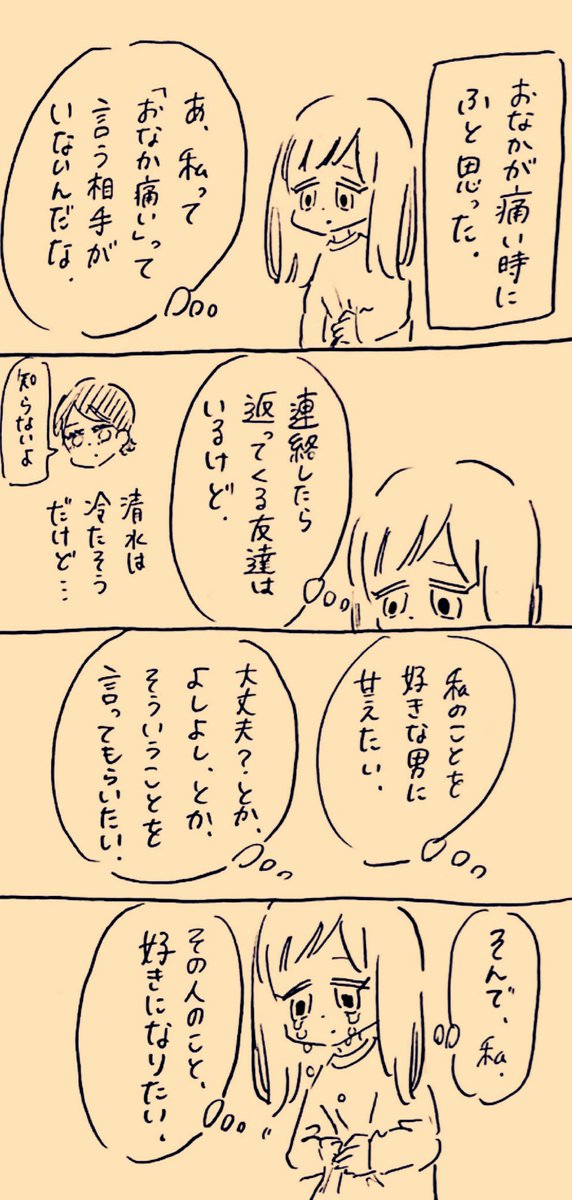 おなかが痛い時に
ふと思った.
あ、私って
「おなか痛い」って
言う相手が
いないんだな.
連絡したら
返ってくる友達は
いるけど.
清水は
冷たそう
だけど…
知らないよ
私のことを
好きな男に
甘えたい.
大丈夫?とか、
よしよし、とか、
そういうことを
言ってもらいたい.
そんで、私.
その人のこと、
好きになりたい.